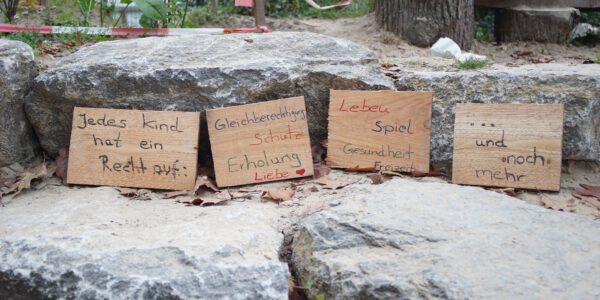 Jedes Kind
hat ein
Recht auf:
Gleichberechtigung
Schutz
Erholung
Liebe
Leben
Spiel
Gesundheit
...
und
noch
mehr